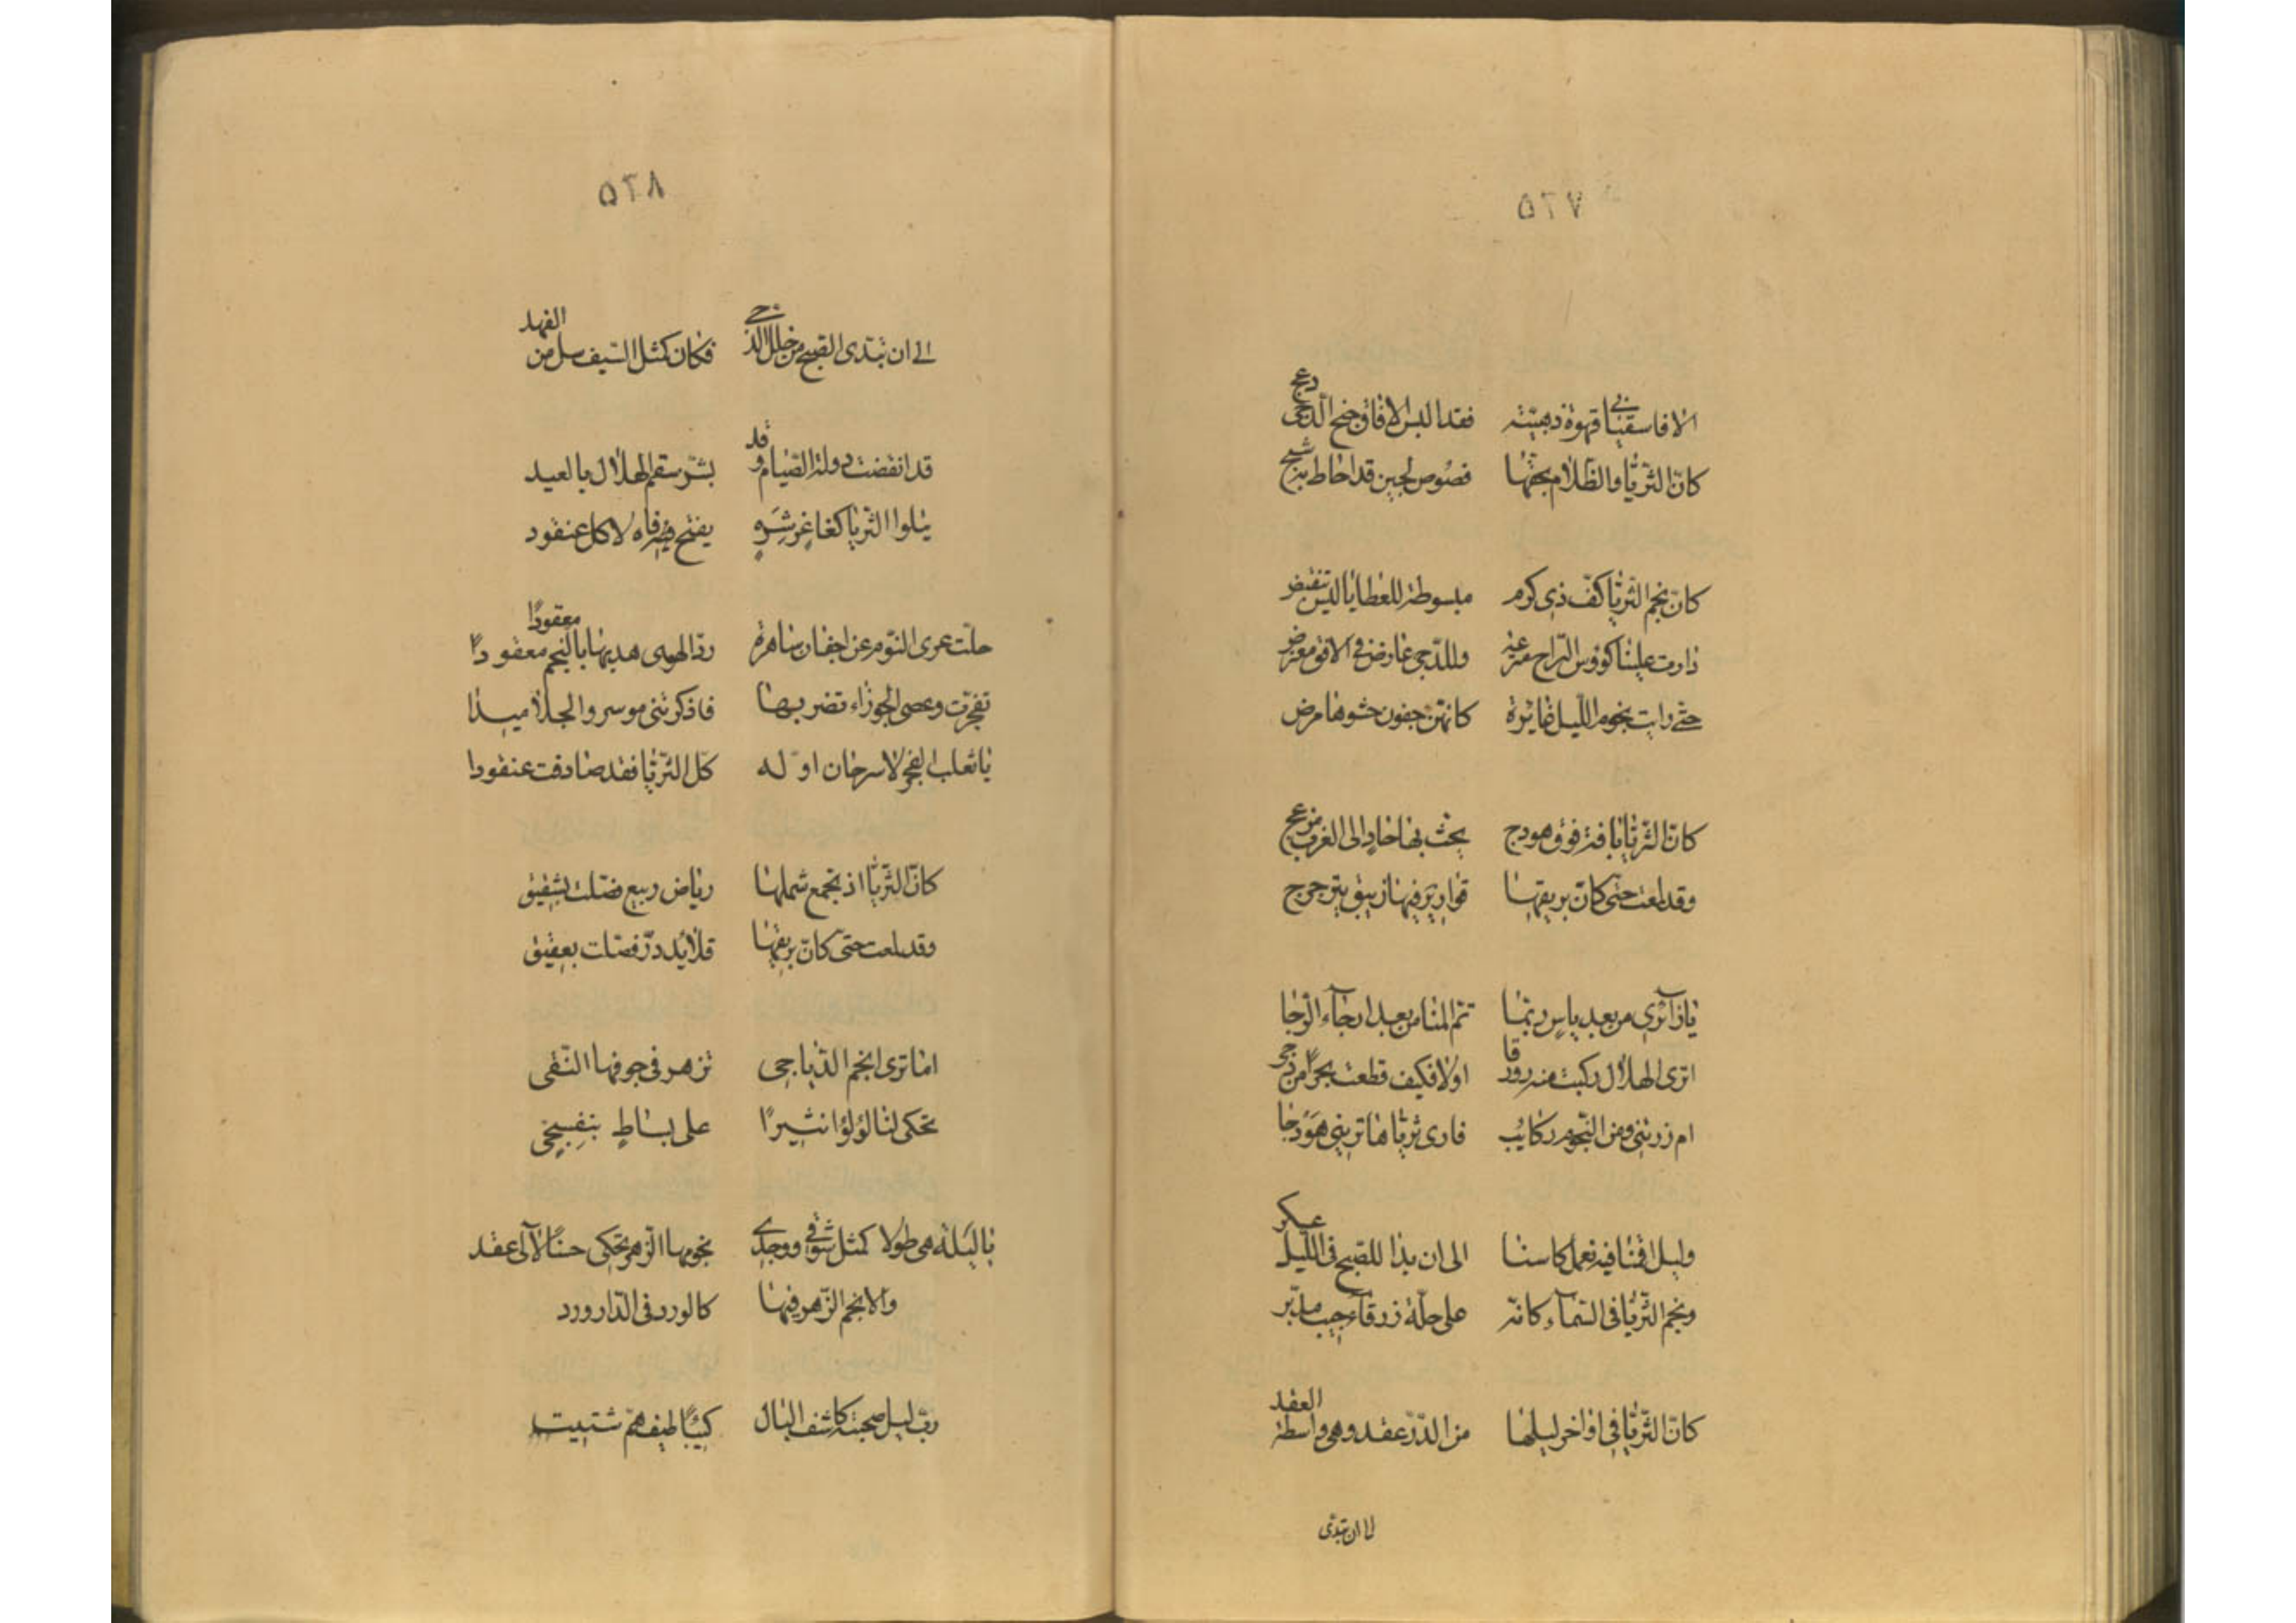 ٥٢٧
الا فاسقياني قهوة ذهبيّة فقد البس الافاق جنح الدّجى دعج
كانّ الثريّا والظّلام يحثها فصوص لجين قد احاط به سبج
كانّ نجم الثريّا كفّ ذى كرم مبسوطة للعطايا ليس تنقبض
دارت علينا كؤوس الرّاح مترعة وللدّجى عارض فى الافق معترض
حتّى رايت نجوم اللّيل غائرة كانهنّ جفون حشوها مرض
كانّ الثريّا فوق هودج يحث بها حاد الى الغرب مزعج
وقد لمعت حتى كانّ بريقها قوارير فيها زيبق يترجرج
يا زآئرى من بعد ياس ربّما تمّ المنا من بعد ارجآء الرّجا
اترى الهلال ركبت منه زورقا اولا فكيف قطعت بحرًا من دجى
ام زرتنى ومن النّجوم ركائب فارى ثريّاها ترينى هودجا
وليل اقمنا فيه نعمل كاسنا الى ان بدا للصّبح فى اللّيل عسكر
ونجم الثريّا فى السّمآء كانّه على حلّة زرقآء جيب مدنّر
كانّ الثريّا فى اواخر ليلها من الدّرّ عقد وهى واسطة العقد
الى ان تبدّى
٥٢٨
الى ان تبدّى الصّبح من خلل الدّجى فكان كمثل السّيف سلّ من الغمد
قد انقضت دولة الصّيام وقد بشّر سقم الهلال بالعيد
يتلوا الثريّا كفاغر شره يفتح فاه لاكل عنقود
حلّت عرى النّوم عن اجفان ساهرة ردّ الهوى هدبها بالنّجم معقودًا
تفجّرت وعصى الجوزاء تضربها فاذكرتنى موسى والجلاميدا
يا ثعلب الفجر لا سرحان اوّله كل الثريّا فقد صادفت عنقودا
كانّ الثريّا اذ تجمع شملها رياض ربيع فصّلت بشقيق
وقد لمعت حتّى كانّ بريقها قلائد درّ فصّلت بعقيق
اما ترى انجم الدّياجى تزهر فى جوفها النّقى
تحكى لنا لؤلؤا نثيرًا على بساط بنفسجى
يا ليلة هى طولا كمثل شوقى ووجدى نجومها الزّهر تحكى حسنًا لآلى عقد
والانجم الزّهر فيها كالورد فى الدّار ورد
ربّ ليل صحبته كاشف البال كئيبًا طيف همّ شتيت